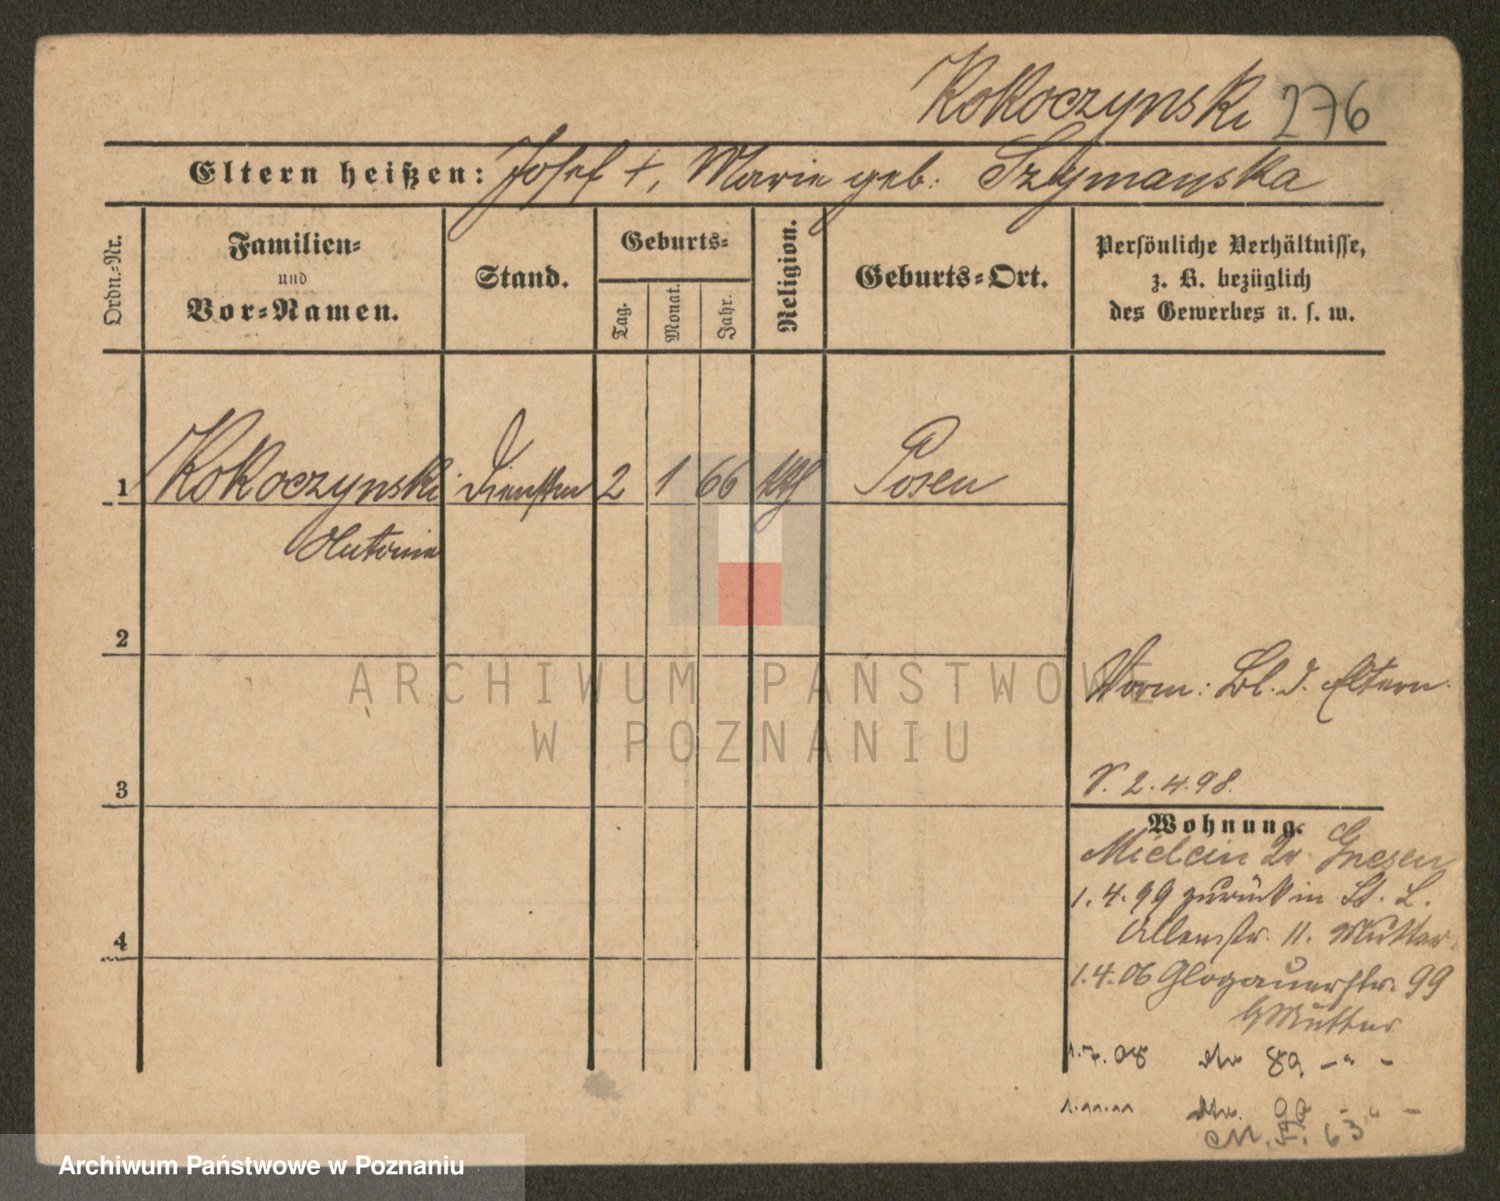 Kokoczynski 276
Eltern heißen: Josef +, Marie geb. Szymanska
Ordn.-Nr.
Familien-
und
Vor-Namen.
Stand.
Geburts-
Tag.
Monat.
Jahr.
Religion.
Geburts-Ort.
Persönliche Verhältnisse,
z. B. bezüglich
des Gewerbes u. s. w.
1 Kokoczynski 2 1 66 kth Posen
Antonie
2
Vorm: Bl. d. Eltern.
3
V. 2.4.98.
Wohnung.
Mielcin Gnesen
1.4.99 zurück in St. L.
Allerstr. 11. Mutter
1.4.06 Glogauerstr. 99
b/Mutter
4
1.7.08 89 - " -
1.11.11 - " -
63
ARCHIWUM PAŃSTWOWE
W POZNANIU
Archiwum Państwowe w Poznaniu